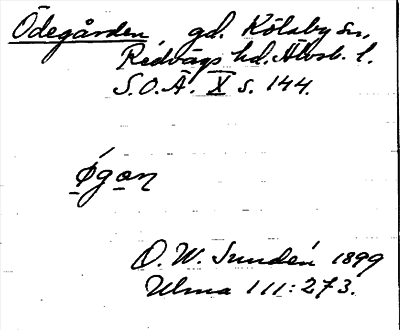 Ödegården, gd. Kölaby sn,
Redvägs hd. Älvsb. l.
S.O.Ä. X s. 144.
ǿgan
O. W. Sundén 1899
Ulma 111:273.